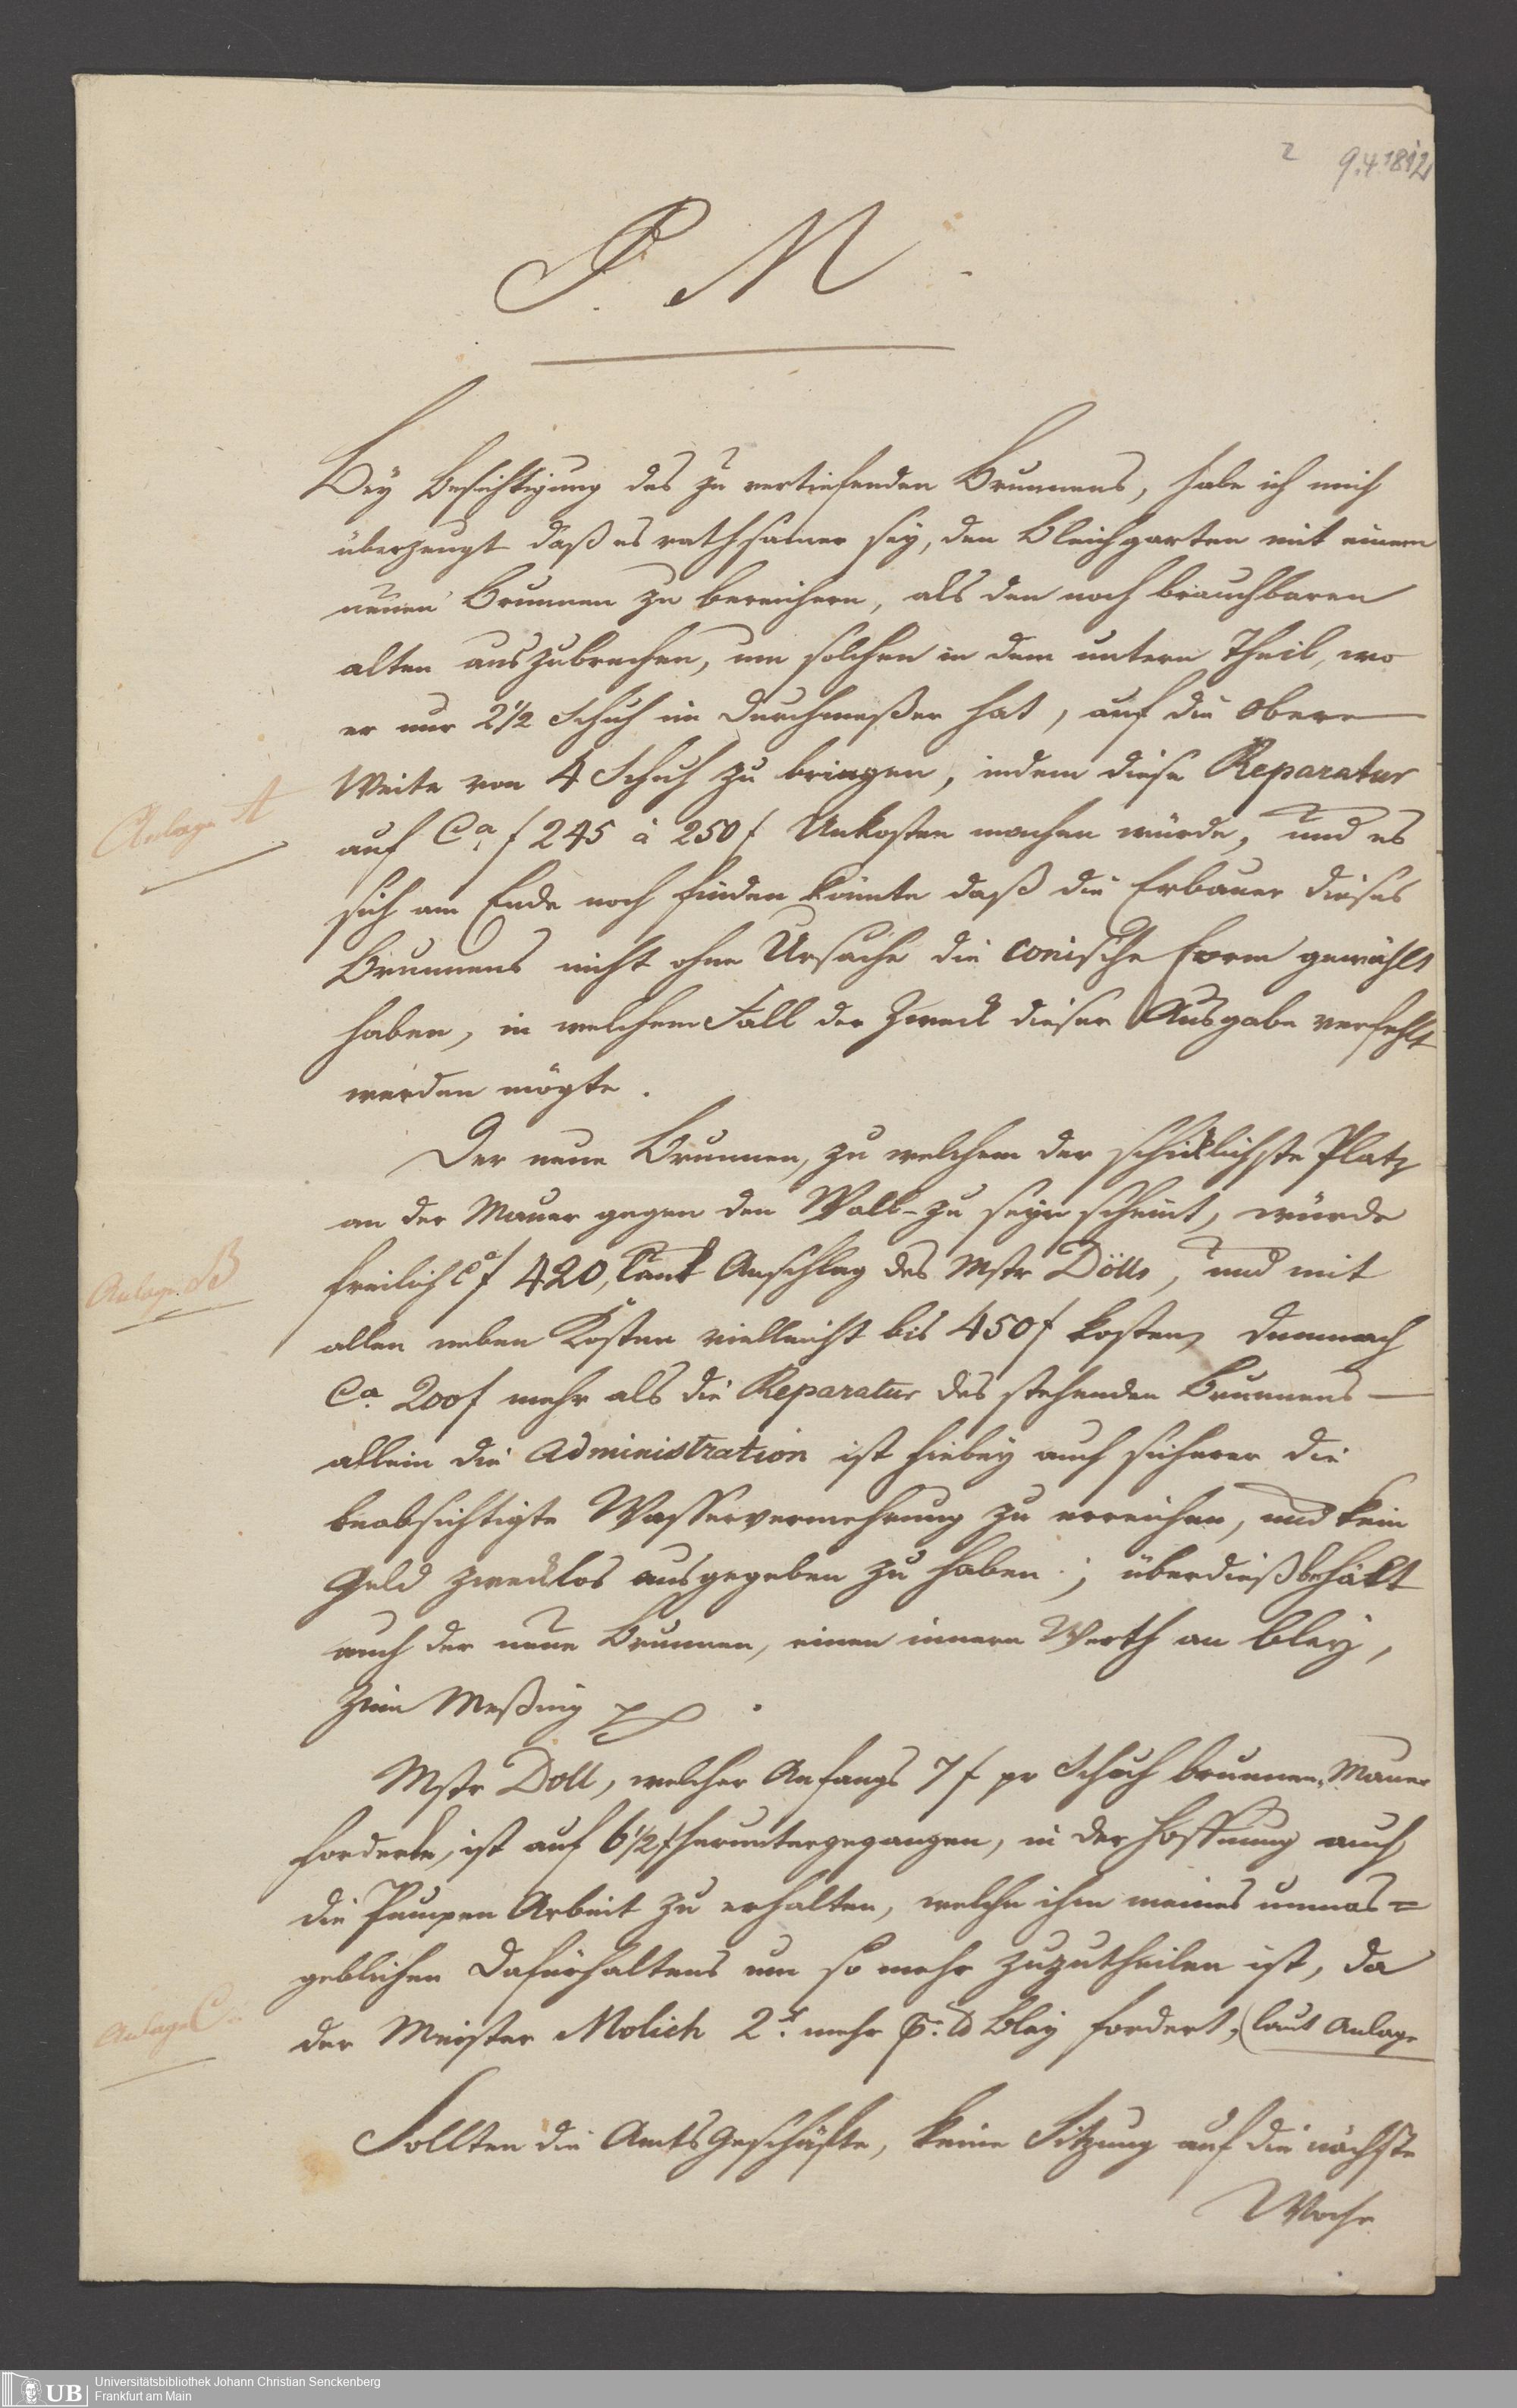 2 9.4.1812
P. M.
Bey Besichtigung des zu vertiefenden Brunnens, habe ich mich
überzeugt daß es rathsamer sey, den Bleichgarten mit einem
neuen Brunnen zu bereichern, als den noch brauchbaren
alten auszubrechen, um solchen in dem untern Theil, wo
er nur 2½ Schuh im Durchmeßer hat, auf die obere
Weite von 4 Schuh zu bringen, indem diese Reparatur
Anlage A
auf Ca. f 245 à 250 f Unkosten machen würde, und es
sich am Ende noch finden könnte daß die Erbauer dieses
Brunnens nicht ohne Ursache die conische Form gewählt
haben, in welchem Fall der Zweck dieser Ausgabe verfehlt
werden mögte.
Der neue Brunnen, zu welchem der schicklichste Platz
an der Mauer gegen den Wall zu seyn scheint, würde
Anlage B
freilich Ca f 420, laut Anschlag des Mstr Dölls, und mit
allen neben Kosten vielleicht bis 450 f kosten, demnach
Ca. 200 f mehr als die Reparatur des stehenden Brunnens —
allein die Administration ist hiebey auch sicherer die
beabsichtigte Wasservermehrung zu erreichen, und kein
Geld zwecklos ausgegeben zu haben; überdieß behält
auch der neue Brunnen, einen innern Werth an Bley,
Zinn Meßing
Mstr Doll, welcher Anfangs 7 f pr Schuh brunnen Mauer
forderte, ist auf 6½ f heruntergegangen, in der Hoffnung auch
die Pumpen Arbeit zu erhalten, welche ihm meines unmas=
geblichen Dafürhaltens um so mehr zuzutheilen ist, da
Anlage C
der Meister Molich 2 mehr Bley fordert, (laut Anlage
Sollten die Amts Geschäfte, keine Sitzung auf die nächste
Woche
UB Universitätsbibliothek Johann Christian Senckenberg
Frankfurt am Main